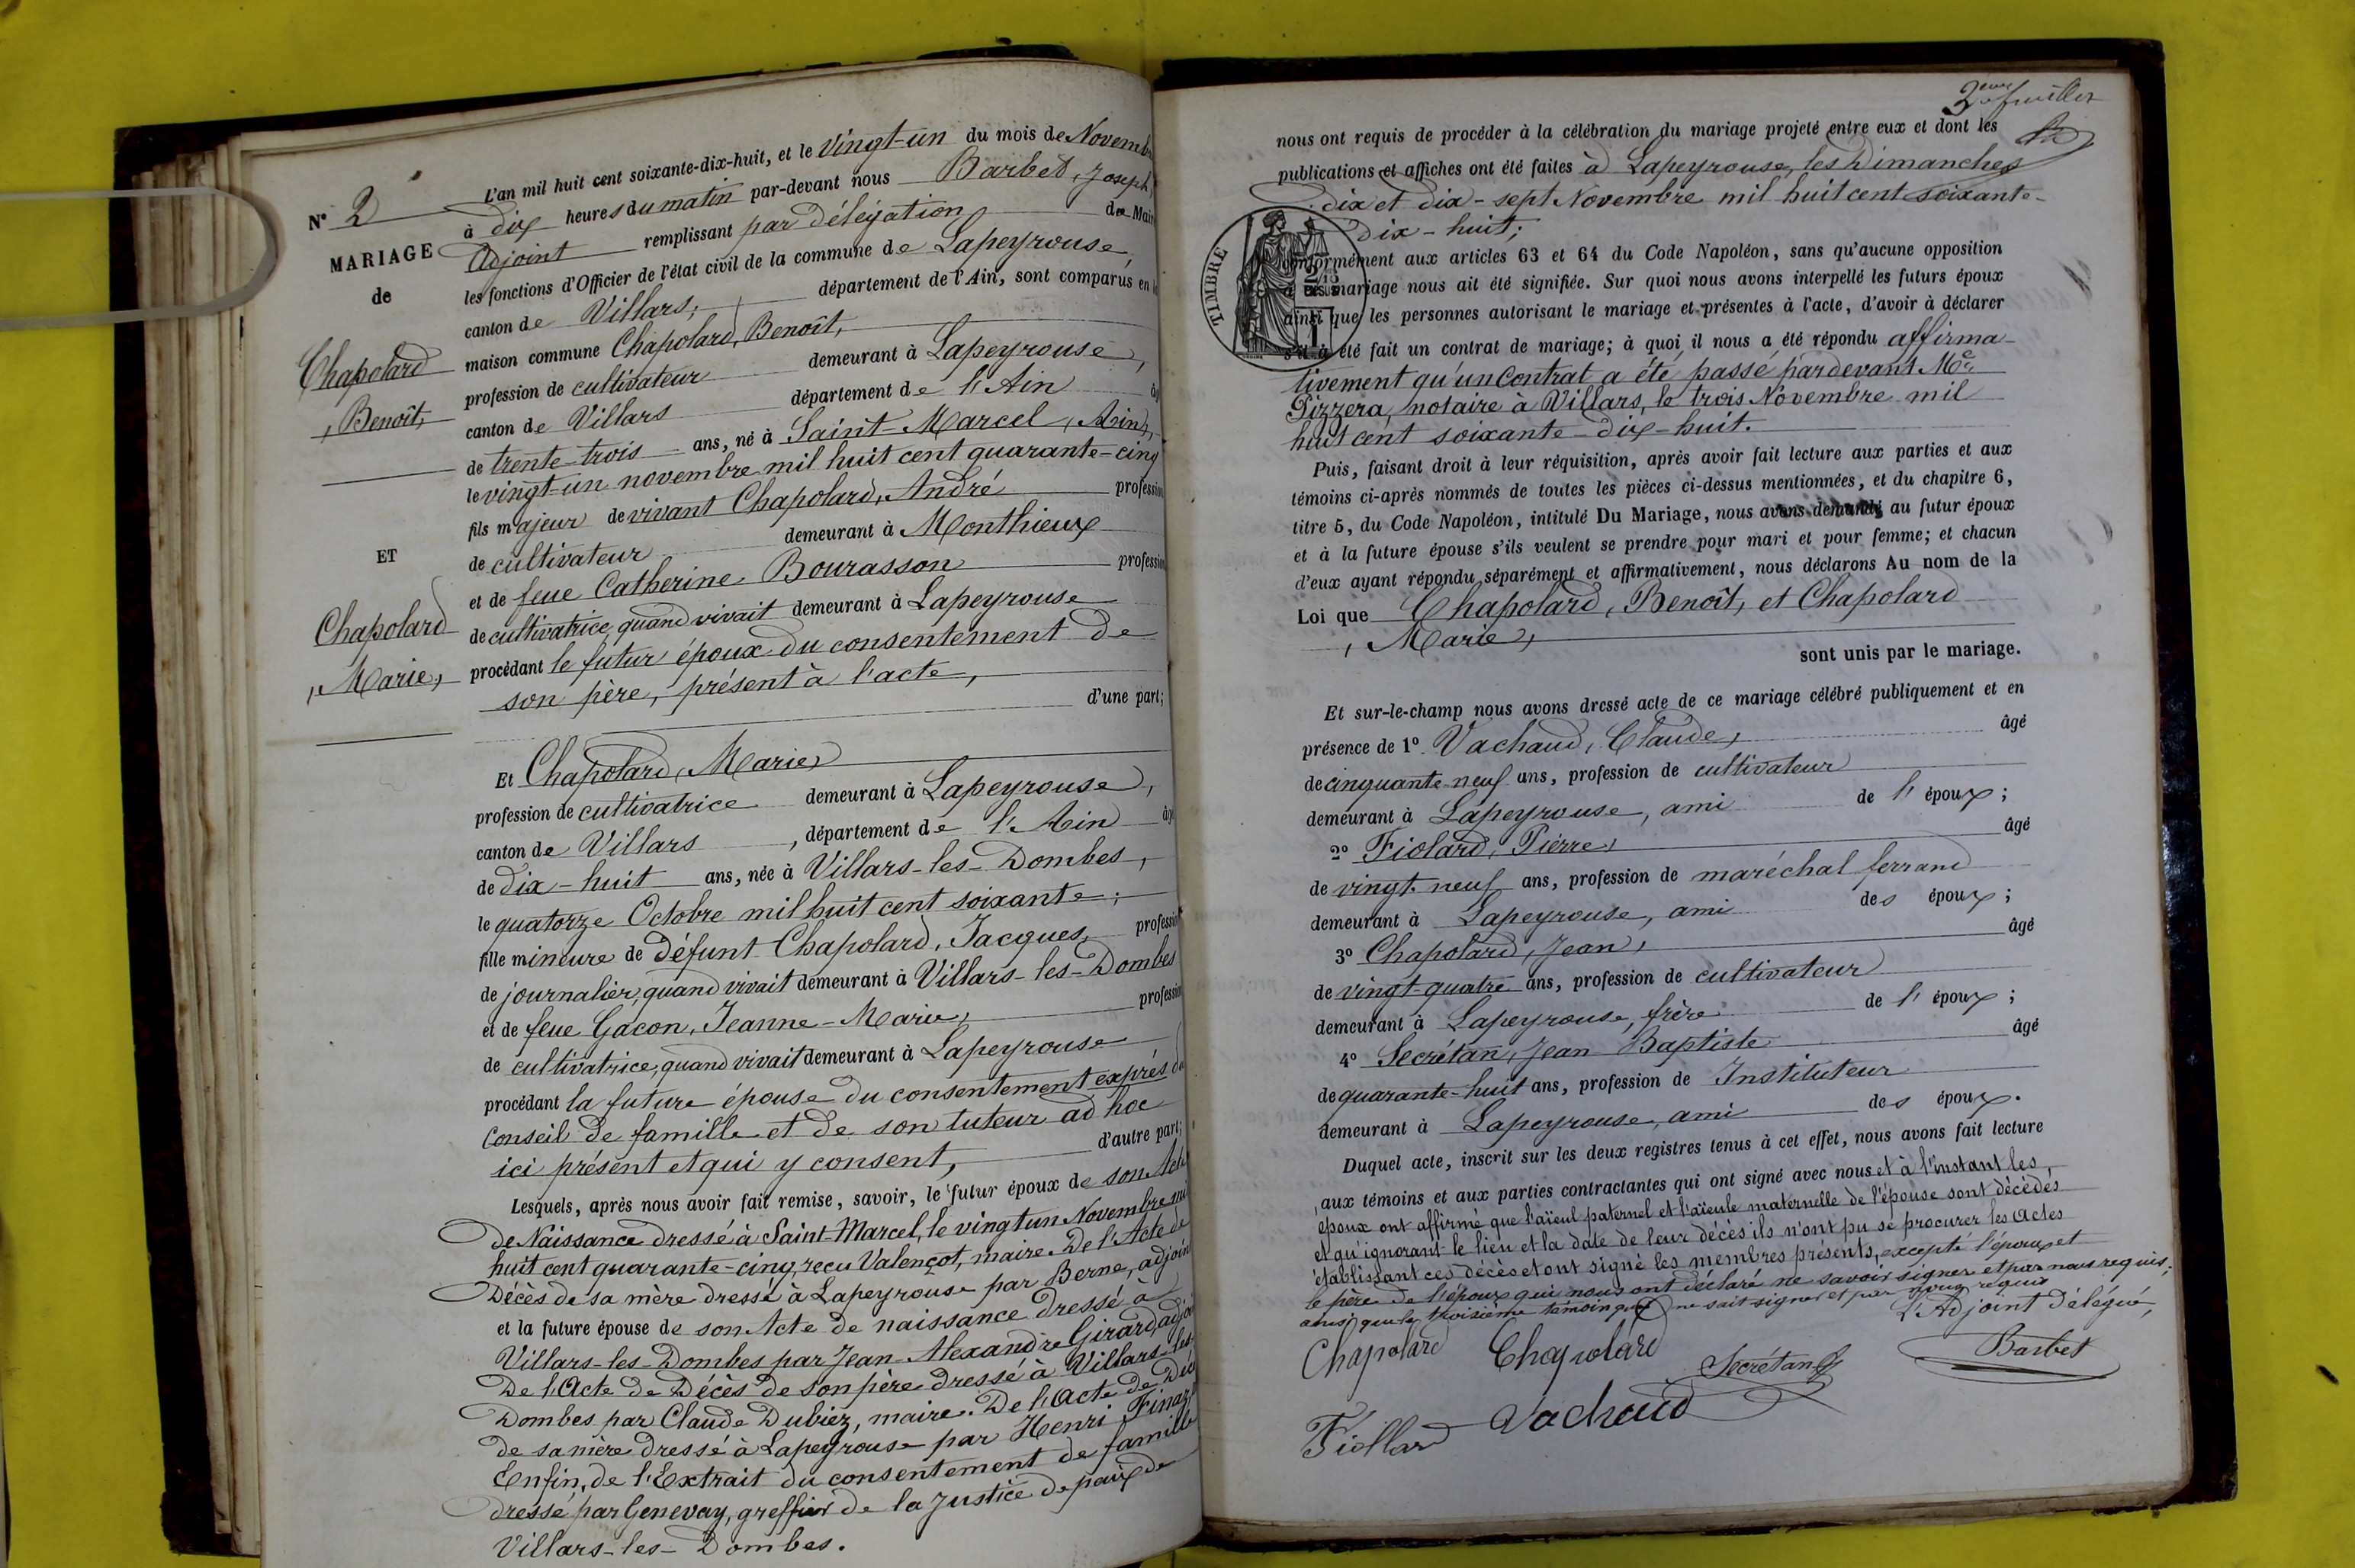 N° 2
MARIAGE
de
Chapolard
, Benoît,
ET
Chapolard
, Marie,
L'an mil huit cent soixante-dix-huit, et le Vingt-un du mois de Novemb
à dix heures du matin par-devant nous Barbet, Joseph,
Adjoint remplissant par délégation de Mair
les fonctions d'Officier de l'état civil de la commune de Lapeyrouse,
canton de Villars, département de l'Ain, sont comparus en l
maison commune Chapolard, Benoît,
profession de cultivateur demeurant à Lapeyrouse,
canton de Villars département de l'Ain âg
de trente-trois ans, né à Saint-Marcel, (Ain),
le vingt-un novembre mil huit cent quarante-cinq
fils majeur de vivant Chapolard, André profession
de cultivateur demeurant à Monthieux
et de feue Catherine Bourasson profession
de cultivatrice quand vivait demeurant à Lapeyrouse
procédant le futur époux du consentement de
son père, présent à l'acte,
d'une part;
Et Chapolard, Marie,
profession de cultivatrice demeurant à Lapeyrouse,
canton de Villars, département de l'Ain âgé
de dix-huit ans, née à Villars-les-Dombes,
le quatorze Octobre mil huit cent soixante;
fille mineure de défunt Chapolard, Jacques, profession
de journalier, quand vivait demeurant à Villars-les-Dombes
et de feue Gacon, Jeanne-Marie, profession
de cultivatrice, quand vivait demeurant à Lapeyrouse
procédant la future épouse du consentement exprés du
Conseil de famille et de son tuteur ad hoc
ici présent et qui y consent, d'autre part;
Lesquels, après nous avoir fait remise, savoir, le futur époux de son Acte
de Naissance dressé à Saint-Marcel, le vingt un Novembre mil
huit cent quarante-cinq, reçu Valençot, maire. De l'Acte de
Décès de sa mère dressé à Lapeyrouse par Berne, adjoint
et la future épouse de son Acte de naissance dressé à
Villars-les-Dombes par Jean-Alexandre Girard, adjoi
De l'Acte de Décès de son père dressé à Villars-les-
Dombes par Claude Dubiez, maire. De l'Acte de Déc
de sa mère dressé à Lapeyrouse par Henri Finaz,
Enfin, de l'Extrait du consentement de famille
dressé par Genevay, greffier de la Justice de paix de
Villars-les-Dombes.
3eme feuillet
nous ont requis de procéder à la célébration du mariage projeté entre eux et dont les
publications et affiches ont été faites à Lapeyrouse, les Dimanches
dix et dix-sept Novembre mil huit cent soixante-
dix-huit;
TIMBRE
conformément aux articles 63 et 64 du Code Napoléon, sans qu'aucune opposition
à ces mariage nous ait été signifiée. Sur quoi nous avons interpellé les futurs époux
ainsi que les personnes autorisant le mariage et présentes à l'acte, d'avoir à déclarer
s'il a été fait un contrat de mariage; à quoi il nous a été répondu affirma-
tivement qu'un Contrat a été passé pardevant Me
Pizzera, notaire à Villars, le trois Novembre mil
huit cent soixante-dix-huit.
Puis, faisant droit à leur réquisition, après avoir fait lecture aux parties et aux
témoins ci-après nommés de toutes les pièces ci-dessus mentionnées, et du chapitre 6,
titre 5, du Code Napoléon, intitulé Du Mariage, nous avons demandé au futur époux
et à la future épouse s'ils veulent se prendre pour mari et pour femme; et chacun
d'eux ayant répondu séparément et affirmativement, nous déclarons Au nom de la
Loi que Chapolard, Benoît, et Chapolard
, Marie,
sont unis par le mariage.
Et sur-le-champ nous avons dressé acte de ce mariage célébré publiquement et en
présence de 1° Vachaud, Claude, âgé
de cinquante-neuf ans, profession de cultivateur
demeurant à Lapeyrouse, ami de l'époux;
2° Fiolard, Pierre, âgé
de vingt-neuf ans, profession de maréchal ferrand
demeurant à Lapeyrouse, ami des époux;
3° Chapolard, Jean, âgé
de vingt-quatre ans, profession de cultivateur
demeurant à Lapeyrouse, frère de l'époux;
4° Secrétan, Jean Baptiste âgé
de quarante-huit ans, profession de Instituteur
demeurant à Lapeyrouse, ami des époux.
Duquel acte, inscrit sur les deux registres tenus à cet effet, nous avons fait lecture
aux témoins et aux parties contractantes qui ont signé avec nous et à l'instant les
époux ont affirmé que l'aïeul paternel et l'aïeule maternelle de l'épouse sont décédés
et qu'ignorant le lieu et la date de leur décès ils n'ont pu se procurer les Actes
établissant ces décès et ont signé les membres présents, excepté l'époux et
le père de l'époux qui nous ont déclaré ne savoir signer et par nous requis;
ainsi que le troisième témoin qui ne sait signer et par nous requis
L'Adjoint délégué,
Chapolard Chapolard Secrétan Barbet
Fiollard Vachaud